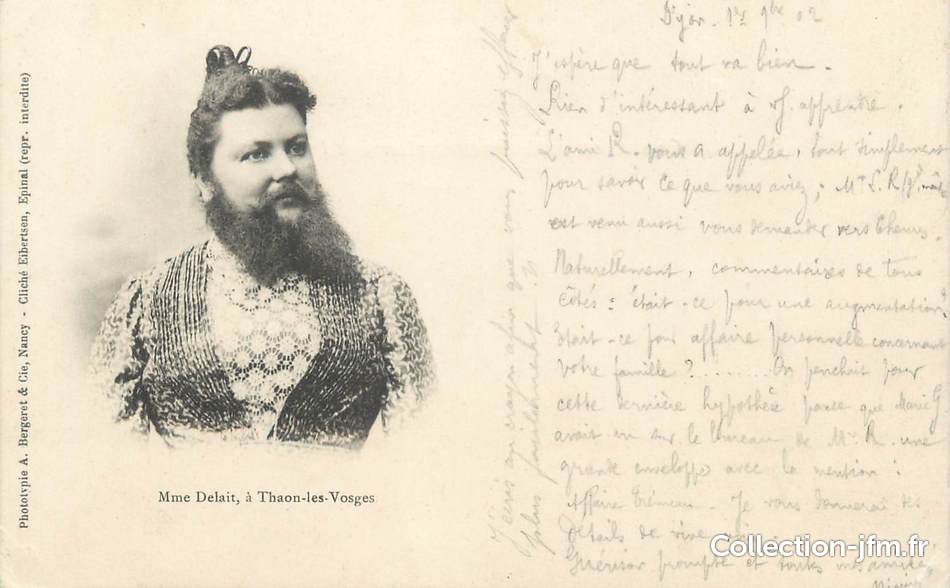 Phototypie A. Bergeret & Cie, Nancy - Cliché Eibertsen, Epinal (repr. interdite)
Mme Delait, à Thaon-les-Vosges
Dijon. 9bre 02
J'espère que tout va bien.
Rien d'intéressant à apprendre.
L'ami R. vous a appelée, tout simplement
pour savoir ce que vous aviez; Mr S. R
est venu aussi vous demander vers
Naturellement, commentaires de tous
côtés: était-ce pour une augmentation
était-ce pour affaire personnelle concernant
votre famille? ........ On penchait pour
cette dernière hypothèse parce que Marie G
avait vu sur le bureau de Mr. R. une
grande enveloppe avec la mention:
Affaire - Je vous donnerai des
détails de vive
Guérison prompte et toutes mes amitiés
J'écris au crayon afin que vous puissiez effacer
plus facilement
Collection-jfm.fr